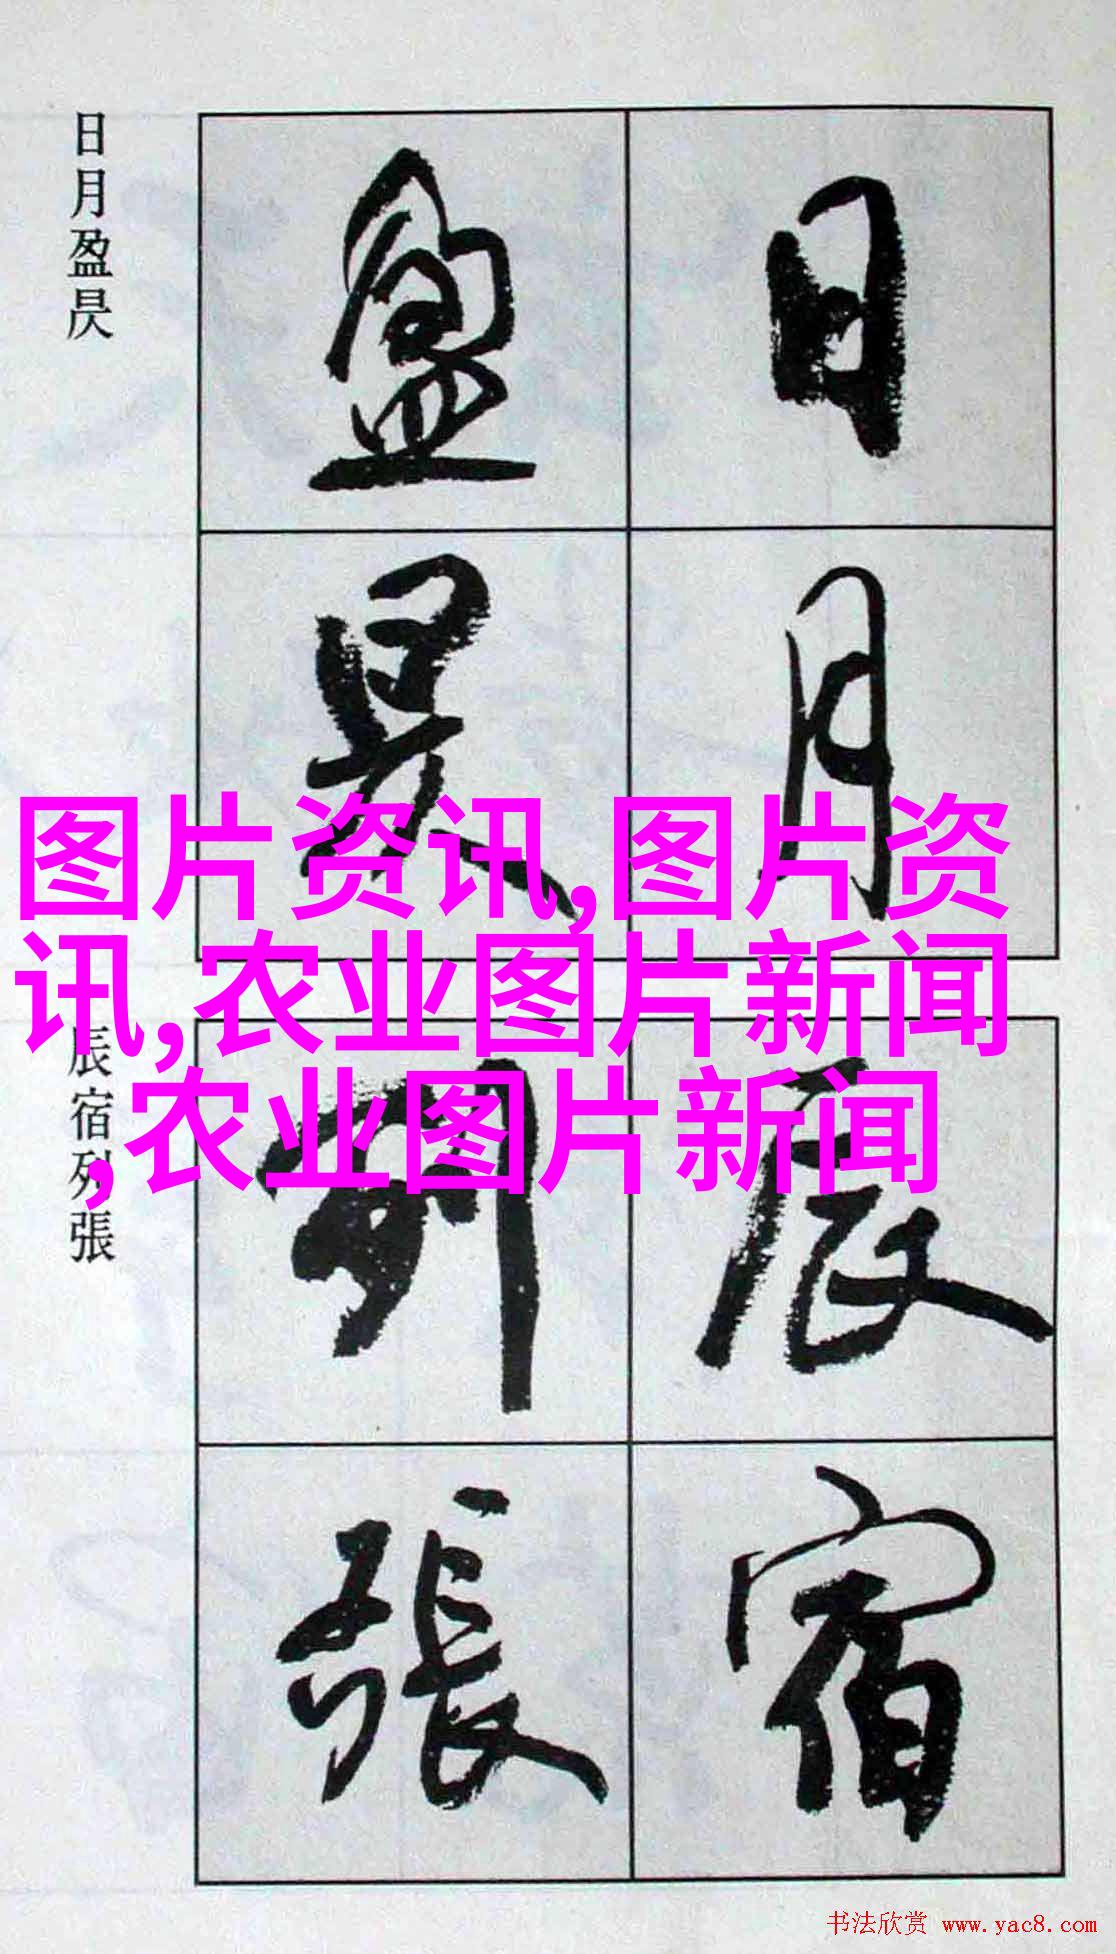 日月盈昃
日月
盈昃
图片资讯,图片资
讯,农业图片新闻
,农业图片新闻
辰宿列張
辰宿
列張
书法欣赏 www.yac8.com